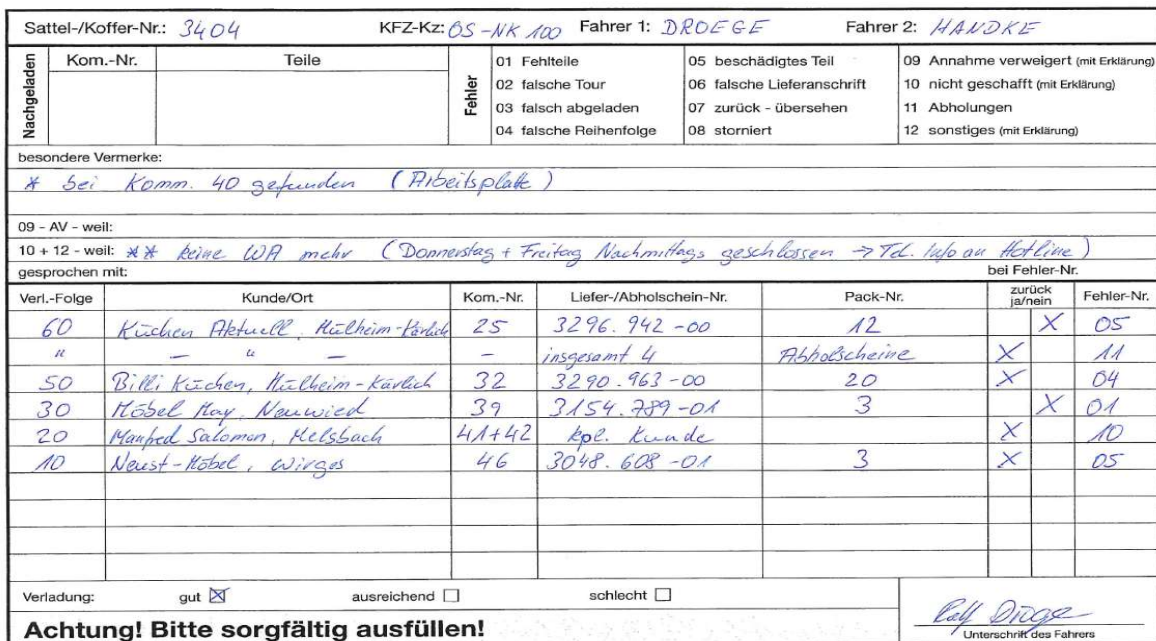 Sattel-/Koffer-Nr.: 3404 KFZ-Kz: OS-NK 100 Fahrer 1: DROEGE Fahrer 2: HANDKE
Nachgeladen Kom.-Nr. Teile Fehler 01 Fehlteile 05 beschädigtes Teil 09 Annahme verweigert (mit Erklärung)
02 falsche Tour 06 falsche Lieferanschrift 10 nicht geschafft (mit Erklärung)
03 falsch abgeladen 07 zurück - übersehen 11 Abholungen
04 falsche Reihenfolge 08 storniert 12 sonstiges (mit Erklärung)
besondere Vermerke:
* bei Komm. 40 gefunden (Arbeitsplatte)
09 - AV - weil:
10 + 12 - weil: ** keine WA mehr (Donnerstag + Freitag Nachmittags geschlossen → Tel. Info an Hotline)
gesprochen mit: bei Fehler-Nr.
Verl.-Folge Kunde/Ort Kom.-Nr. Liefer-/Abholschein-Nr. Pack-Nr. zurück ja/nein Fehler-Nr.
60 Küchen Aktuell, Mülheim-Kärlich 25 3296.942-00 12 X 05
" — " — - insgesamt 4 Abholscheine X 11
50 Billi Küchen, Mülheim-Kärlich 32 3290.963-00 20 X 04
30 Möbel May, Neuwied 39 3154.789-01 3 X 01
20 Manfred Salomon, Melsbach 41+42 kpl. Kunde X 10
10 Neust-Möbel, Wirges 46 3048.608-01 3 X 05
Verladung: gut ☒ ausreichend ☐ schlecht ☐
Achtung! Bitte sorgfältig ausfüllen!
Unterschrift des Fahrers